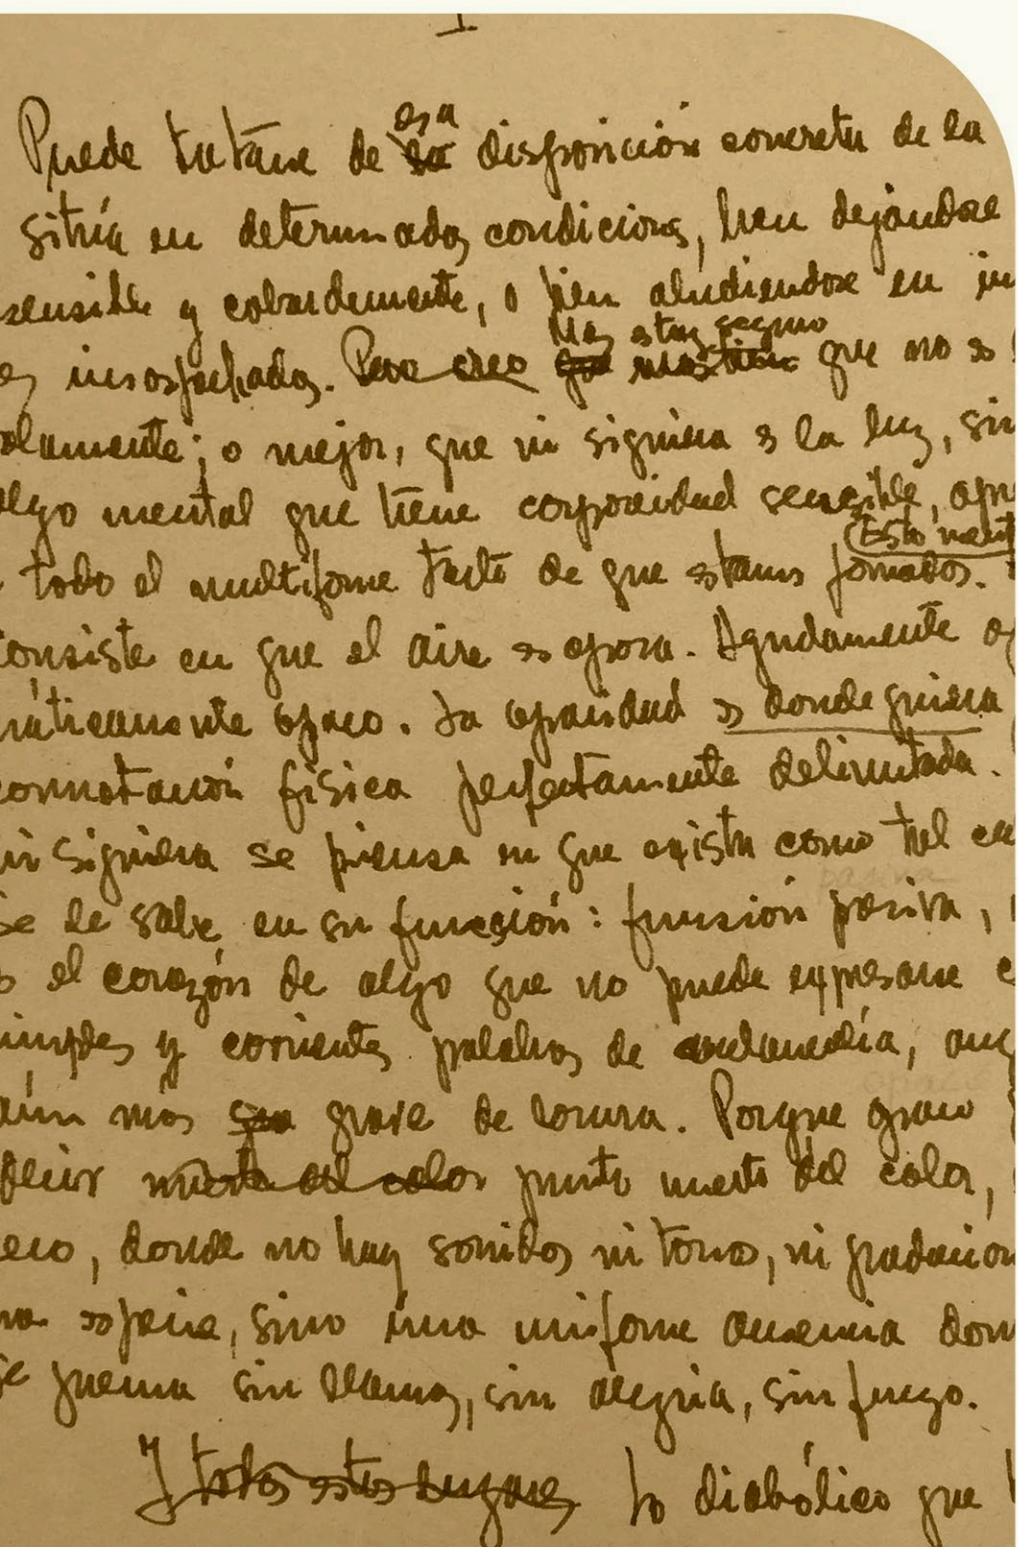 I.
esa
Puede tratarse de la disposición concreta de la
sitúa en determinadas condiciones, bien dejándose
sensible y cobardemente, o bien aludiéndose en in
es insospechadas. Pero creo Mas estoy seguro que no es
olamente; o mejor, que ni siquiera es la luz, sin
algo mental que tiene corporeidad sensible, apr
(Esto
todo el multiforme de que estamos formados.
consiste en que el aire es opaco. Agudamente o
máticamente opaco. La opacidad es dondequiera
connotación física perfectamente delimitada.
ni siquiera se piensa en que exista como tal
pasiva
Se le sabe en su función: función pasiva,
el corazón de algo que no puede expresarse c
imples y corrientes palabras de aunq
aún más grave de locura. Porque opaco
decir muerto del color punto muerto del color,
eco, donde no hay sonidos ni tonos, ni gradacion
na especie, sino una uniforme ausencia don
se quema sin llamas, sin alegría, sin fuego.
Y todos estos lugares Lo diabólico que